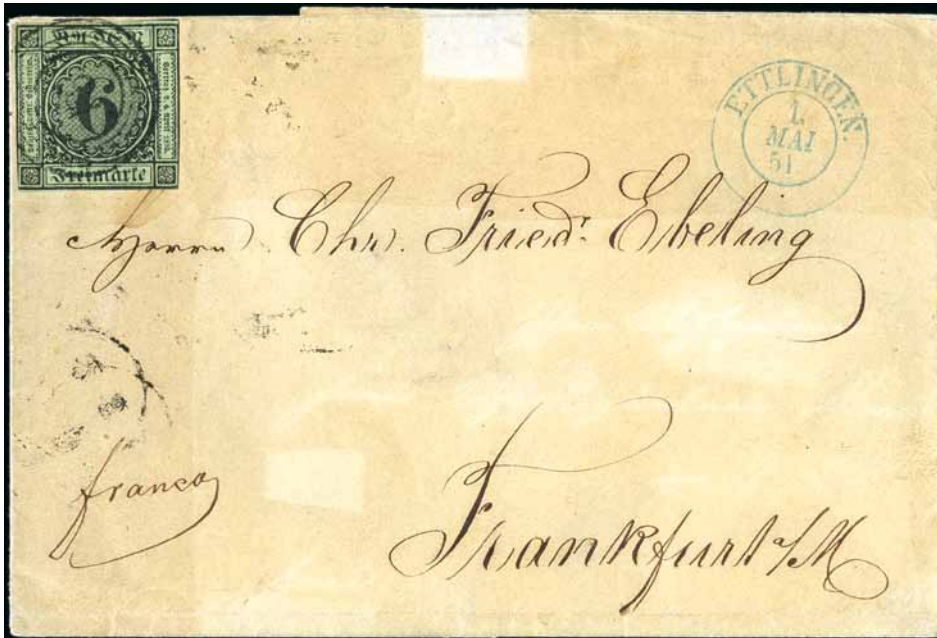 6
Freimarke
ETTLINGEN.
1.
MAI
51
Herrn Chr. Friedr. Ebeling
franco
Frankfurt a/M